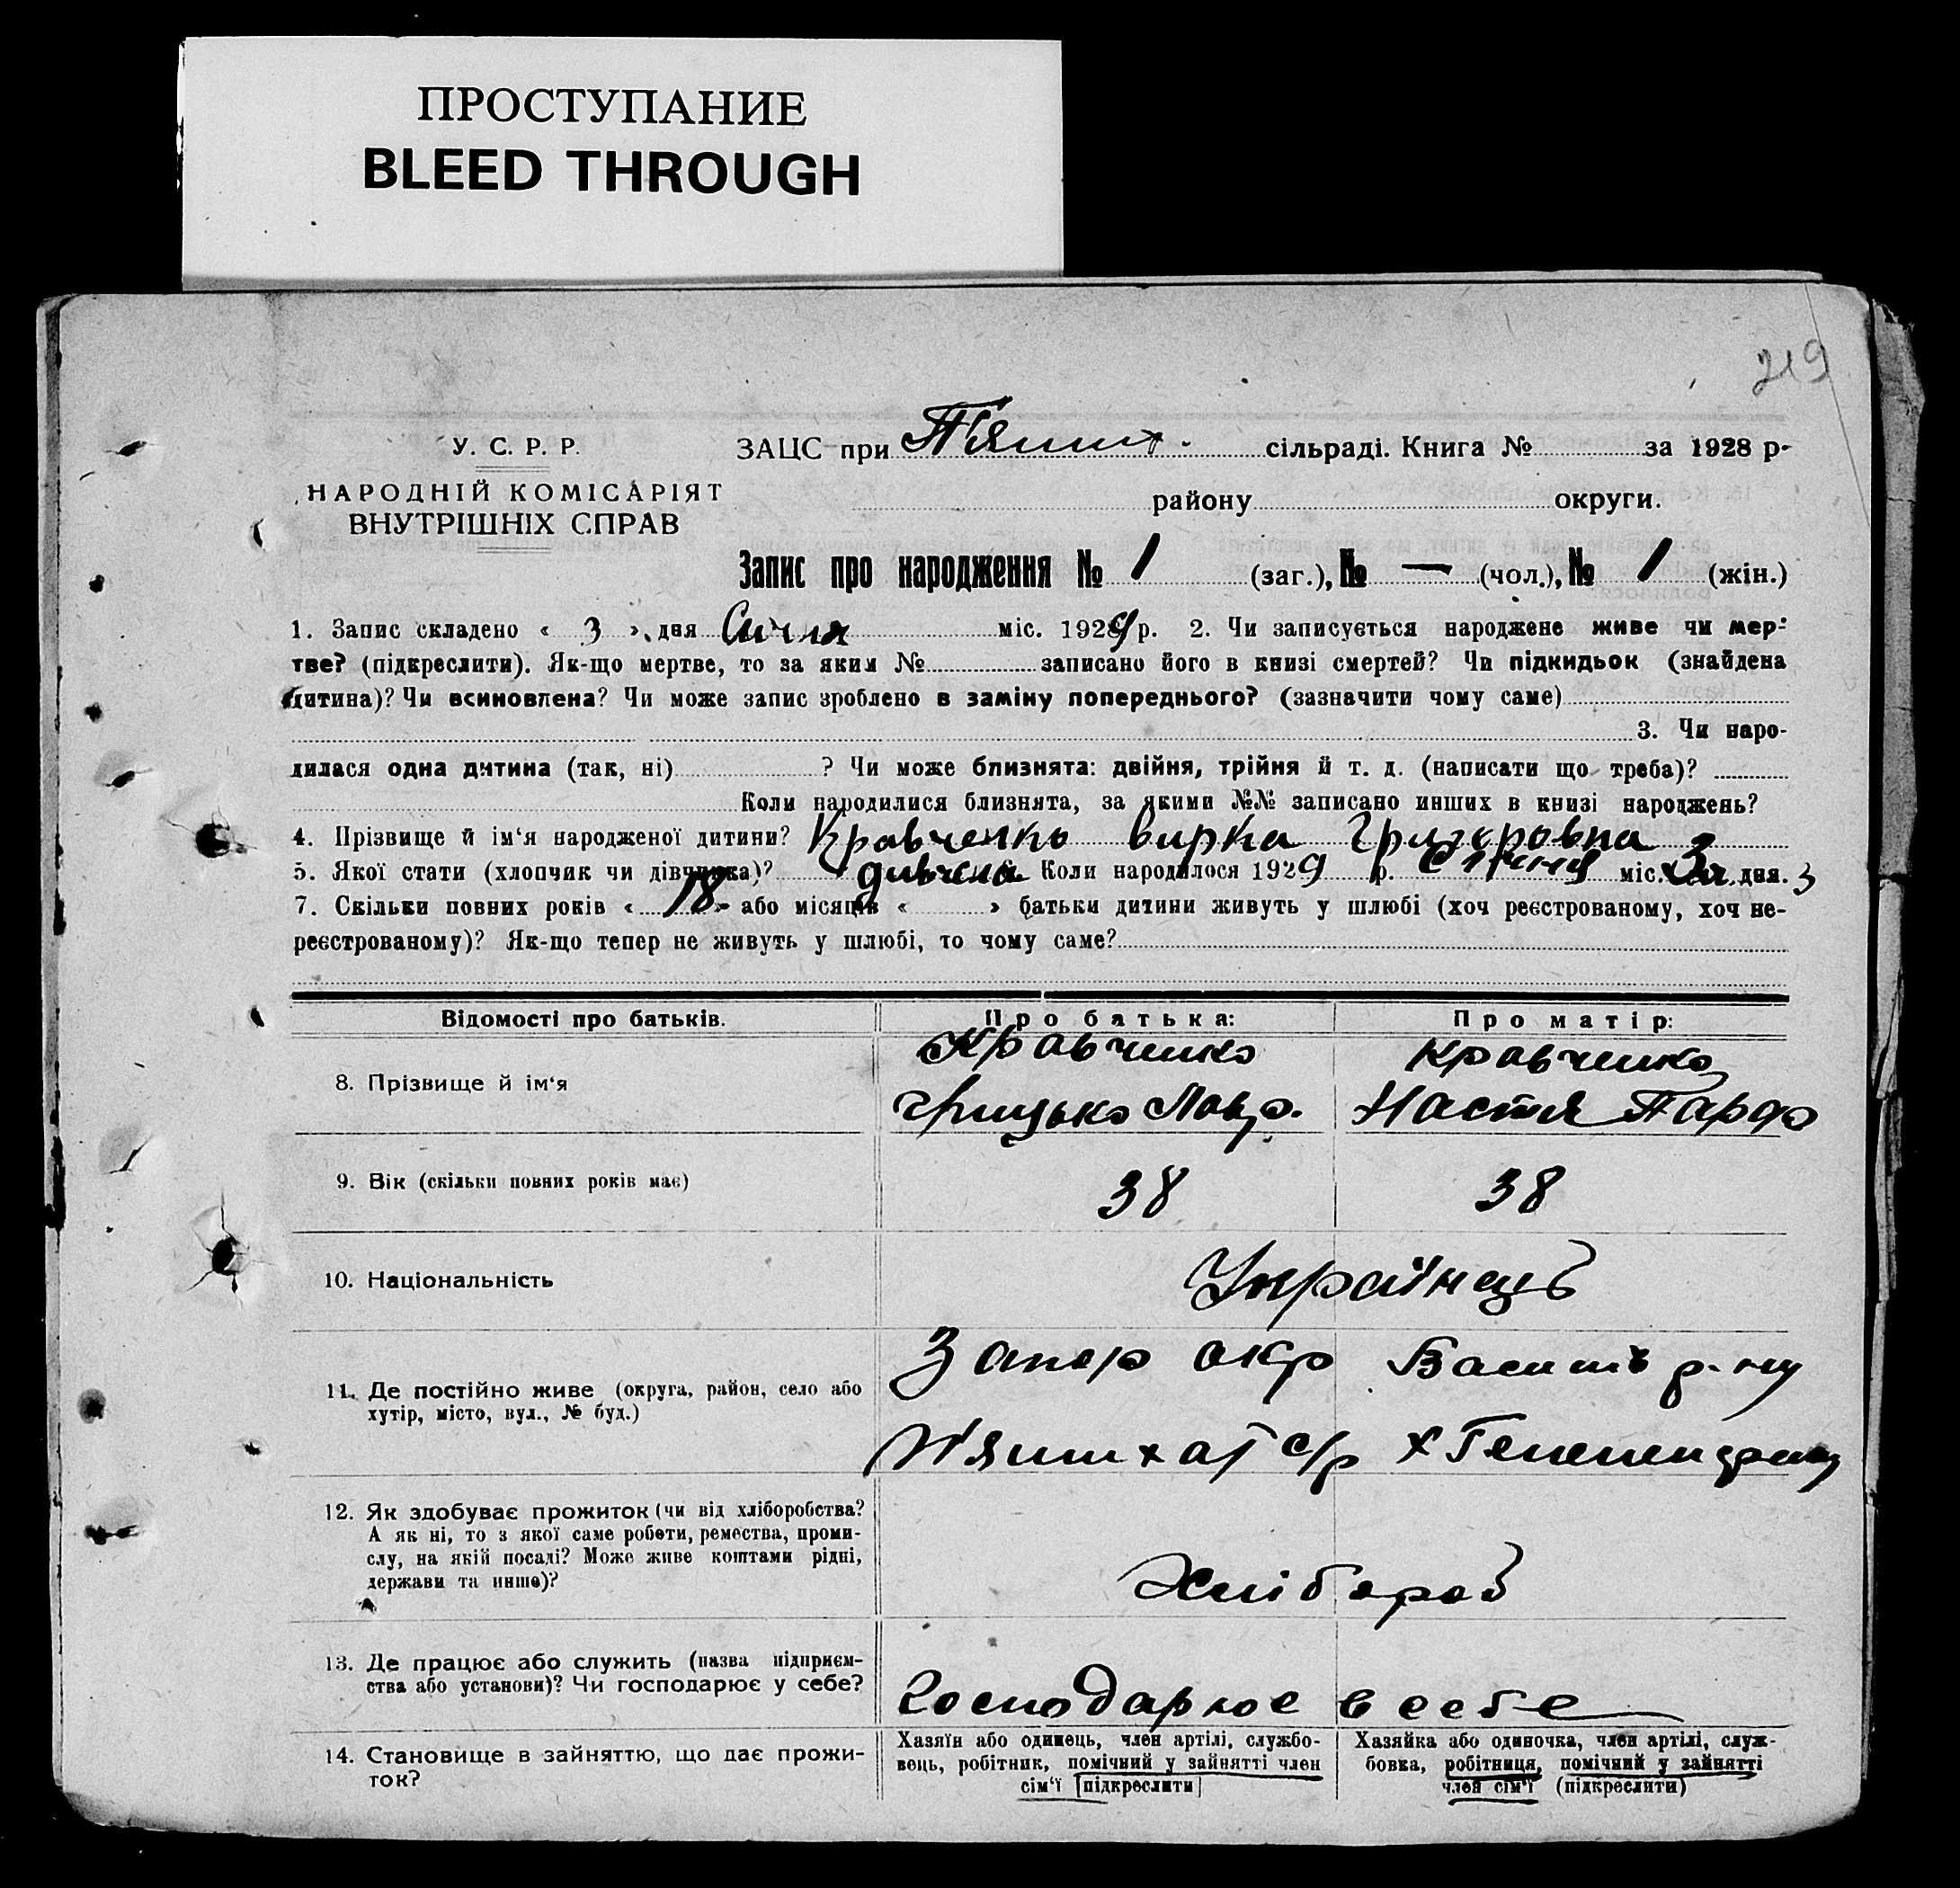 ПРОСТУПАНИЕ
BLEED THROUGH
219
У. С. Р. Р.
НАРОДНІЙ КОМІСАРІЯТ
ВНУТРІШНІХ СПРАВ
ЗАЦС при П'яших. сільраді. Книга № за 1928 р.
району округи.
Запис про народження № 1 (заг.), № — (чол.), № 1 (жін.)
1. Запис складено « 3 » дня Січня міс. 1929 р. 2. Чи записується народжене живе чи мер-
тве? (підкреслити). Як-що мертве, то за яким № записано його в книзі смертей? Чи підкидьок (знайдена
дитина)? Чи всиновлена? Чи може запис зроблено в заміну попереднього? (зазначити чому саме)
3. Чи наро-
дилася одна дитина (так, ні) ? Чи може близнята: двійня, трійня й т. д. (написати що треба)?
Коли народилися близнята, за якими №№ записано инших в книзі народжень?
4. Прізвище й ім'я народженої дитини? Кравченко Вирка Григоровна
5. Якої стати (хлопчик чи дівчинка)? дивчена Коли народилося 1929 р. Січня міс. 3 дня. 3
7. Скільки повних років « 18 » або місяців « » батьки дитини живуть у шлюбі (хоч реєстрованому, хоч не-
реєстрованому)? Як-що тепер не живуть у шлюбі, то чому саме?
Відомості про батьків. Про батька: Про матір:
8. Прізвище й ім'я Кравченко Кравченко
Грицько Лавр. Настя Парфо
9. Вік (скільки повних років має) 38 38
10. Національність Українець
11. Де постійно живе (округа, район, село або
хутір, місто, вул., № буд.)
Запор окр Василів р-ну
П'яшихат с/р х
12. Як здобуває прожиток (чи від хліборобства?
А як ні, то з якої саме роботи, ремества, проми-
слу, на якій посаді? Може живе коштами рідні,
держави та инше)?
Хлібороб
13. Де працює або служить (назва підприєм-
ства або установи)? Чи господарює у себе?
Господарює в себе
14. Становище в зайняттю, що дає прожи-
ток?
Хазяїн або одинець, член артілі, службо-
вець, робітник, помічний у зайнятті член
сім'ї [підкреслити]
Хазяйка або одиночка, член артілі, служ-
бовка, робітниця, помічний у зайнятті
член сім'ї (підкреслити)